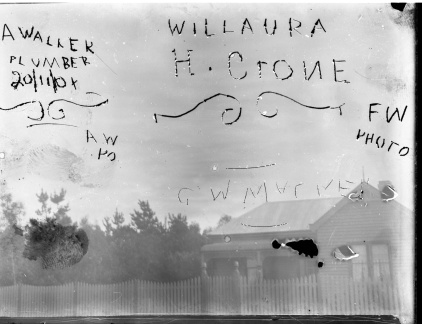 A WALKER
PLUMBER
20/11/04
A W
PO
WILLAURA
H. CRONE
FW
PHOTO